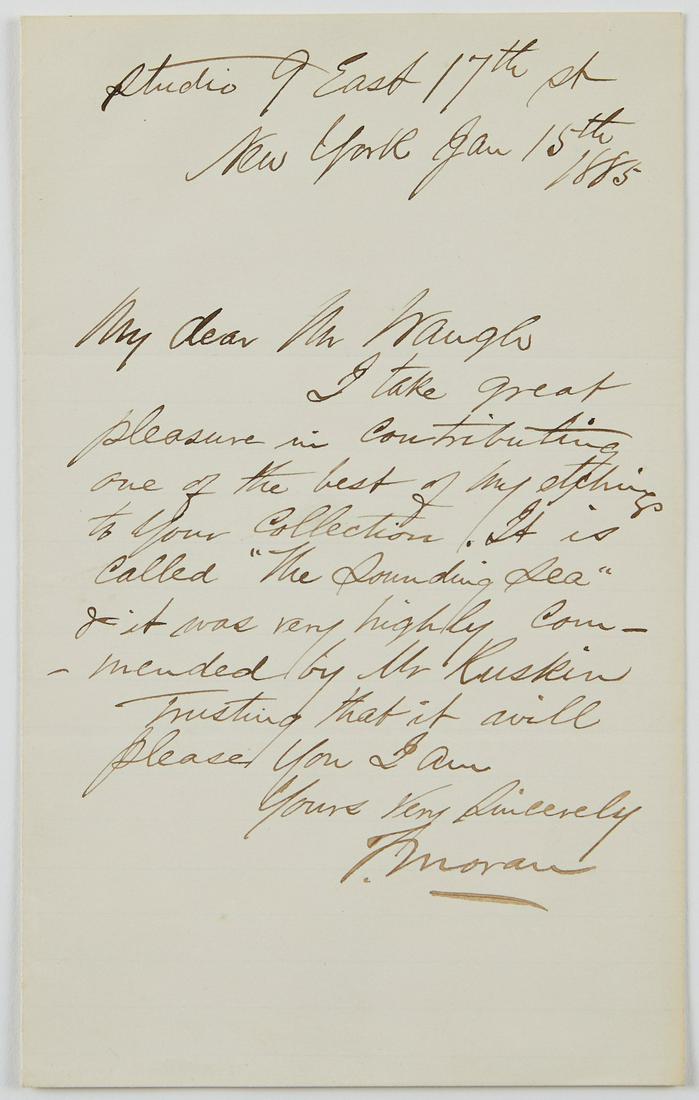 Studio 9 East 17th st
New York Jan 15th
1885
My dear Mr Waugh
I take great
pleasure in contributing
one of the best of my etchings
to your collection. It is
called "The Sounding Sea"
& it was very highly com-
- mended by Mr Ruskin
Trusting that it will
please you I am
Yours very sincerely
T. Moran